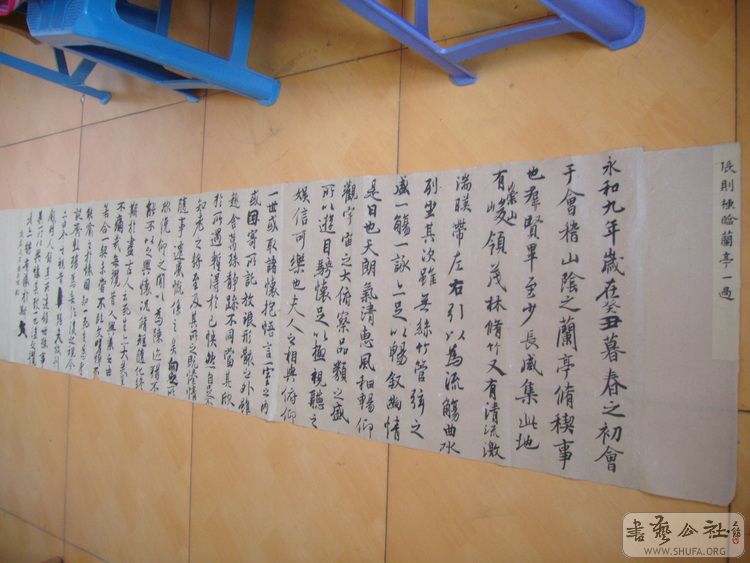 張則棟臨蘭亭一過
永和九年歲在癸丑暮春之初會
于會稽山陰之蘭亭脩稧事
也羣賢畢至少長咸集此地
有崇山峻領茂林脩竹又有清流激
湍暎帶左右引以為流觴曲水
列坐其次雖無絲竹管弦之
盛一觴一詠亦足以暢叙幽情
是日也天朗氣清惠風和暢仰
觀宇宙之大俯察品類之盛
所以遊目騁懷足以極視聽之
娛信可樂也夫人之相與俯仰
一世或取諸懷抱悟言一室之內
或因寄所託放浪形骸之外雖
趣舍萬殊靜躁不同當其欣
於所遇暫得於己快然自足不
知老之將至及其所之既惓情
隨事遷感慨係之矣向之所
欣俛仰之間以為陳迹猶不
能不以之興懷況脩短隨化終
期於盡古人云死生亦大矣豈
不痛哉每攬昔人興感之由
若合一契未嘗不臨文嗟悼不
能喻之於懷固知一死生為虛
書藝公社
WWW.SHUFA.ORG